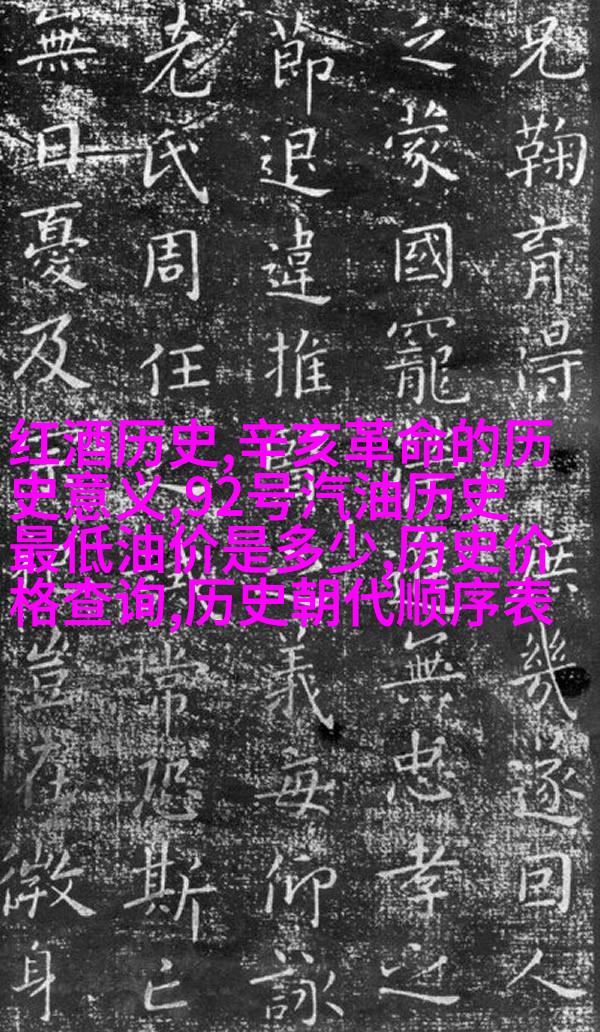 兄鞠育得幾遂回人
之蒙國寵無忠孝之
節退違推義每仰詠
老氏周任常恐斯亡
無日憂及豈在微身
红酒历史,辛亥革命的历
史意义,92号汽油历史
最低油价是多少,历史价
格查询,历史朝代顺序表